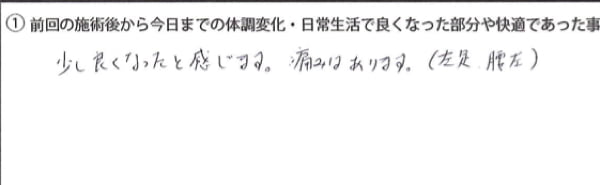 ① 前回の施術後から今日までの体調変化・日常生活で良くなった部分や快適であった事
少し良くなったと感じます。痛みはあります。(左足、腰左)